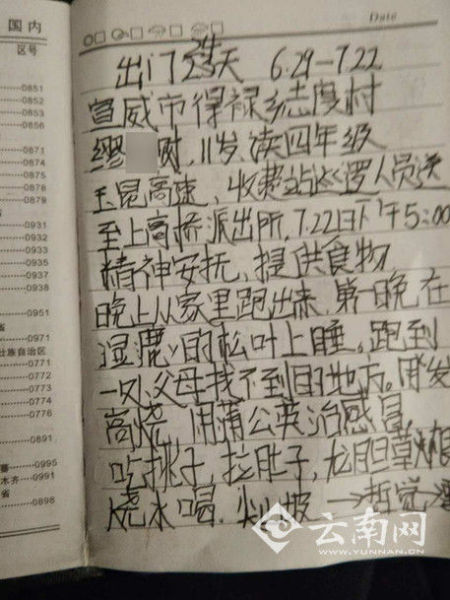 国内
区号
0851
0852
0853
0856
0871
0874
0875
0878
0879
0931
0932
0933
0934
0935
0937
0938
0951
0971
壮族自治区
0771
0772
0773
0774
0776
0891
0995
木齐 0991
0898
Date
出门24天 6.29—7.22
宣威市得禄乡志度村
缪 财，11岁，读四年级
玉昆高速，收费站巡逻人员送
至上高桥派出所，7.22日下午5:00
精神安抚，提供食物
晚上从家里跑出来，第一晚在
湿漉漉的松叶上睡。跑到
一处父母找不到的地方。
高烧，用蒲公英治感冒，
吃桃子，拉肚子，龙胆草根
烧水喝，
云南网
WWW.YUNNAN.CN